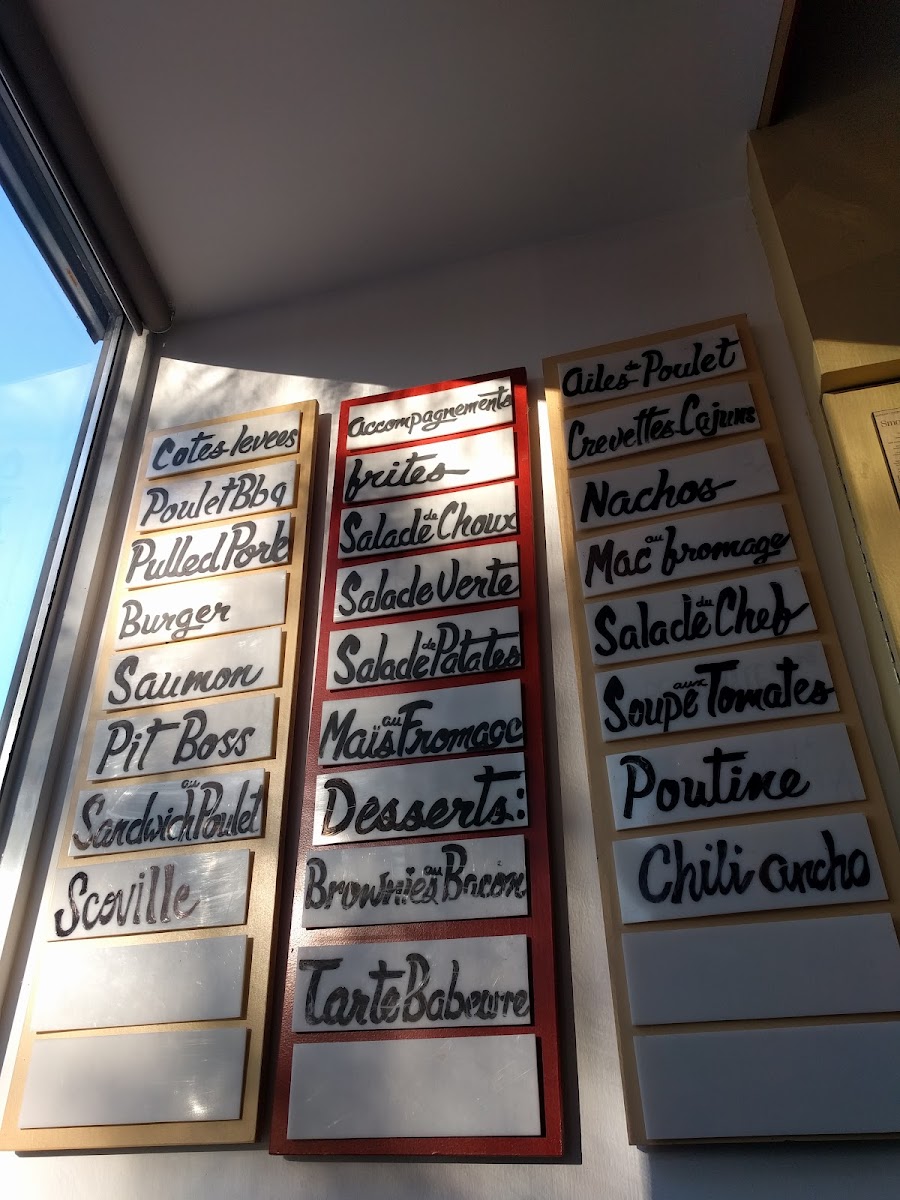 Cotes levees
Poulet Bbq
Pulled Pork
Burger
Saumon
Pit Boss
Sandwich au Poulet
Scoville
Accompagnements
frites
Salade de Choux
Salade Verte
Salade de Patates
Maïs au Fromage
Desserts:
Brownies au Bacon
Tarte Babeurre
Ailes de Poulet
Crevettes Cajuns
Nachos
Mac au fromage
Salade du Chef
Soupe aux Tomates
Poutine
Chili ancho